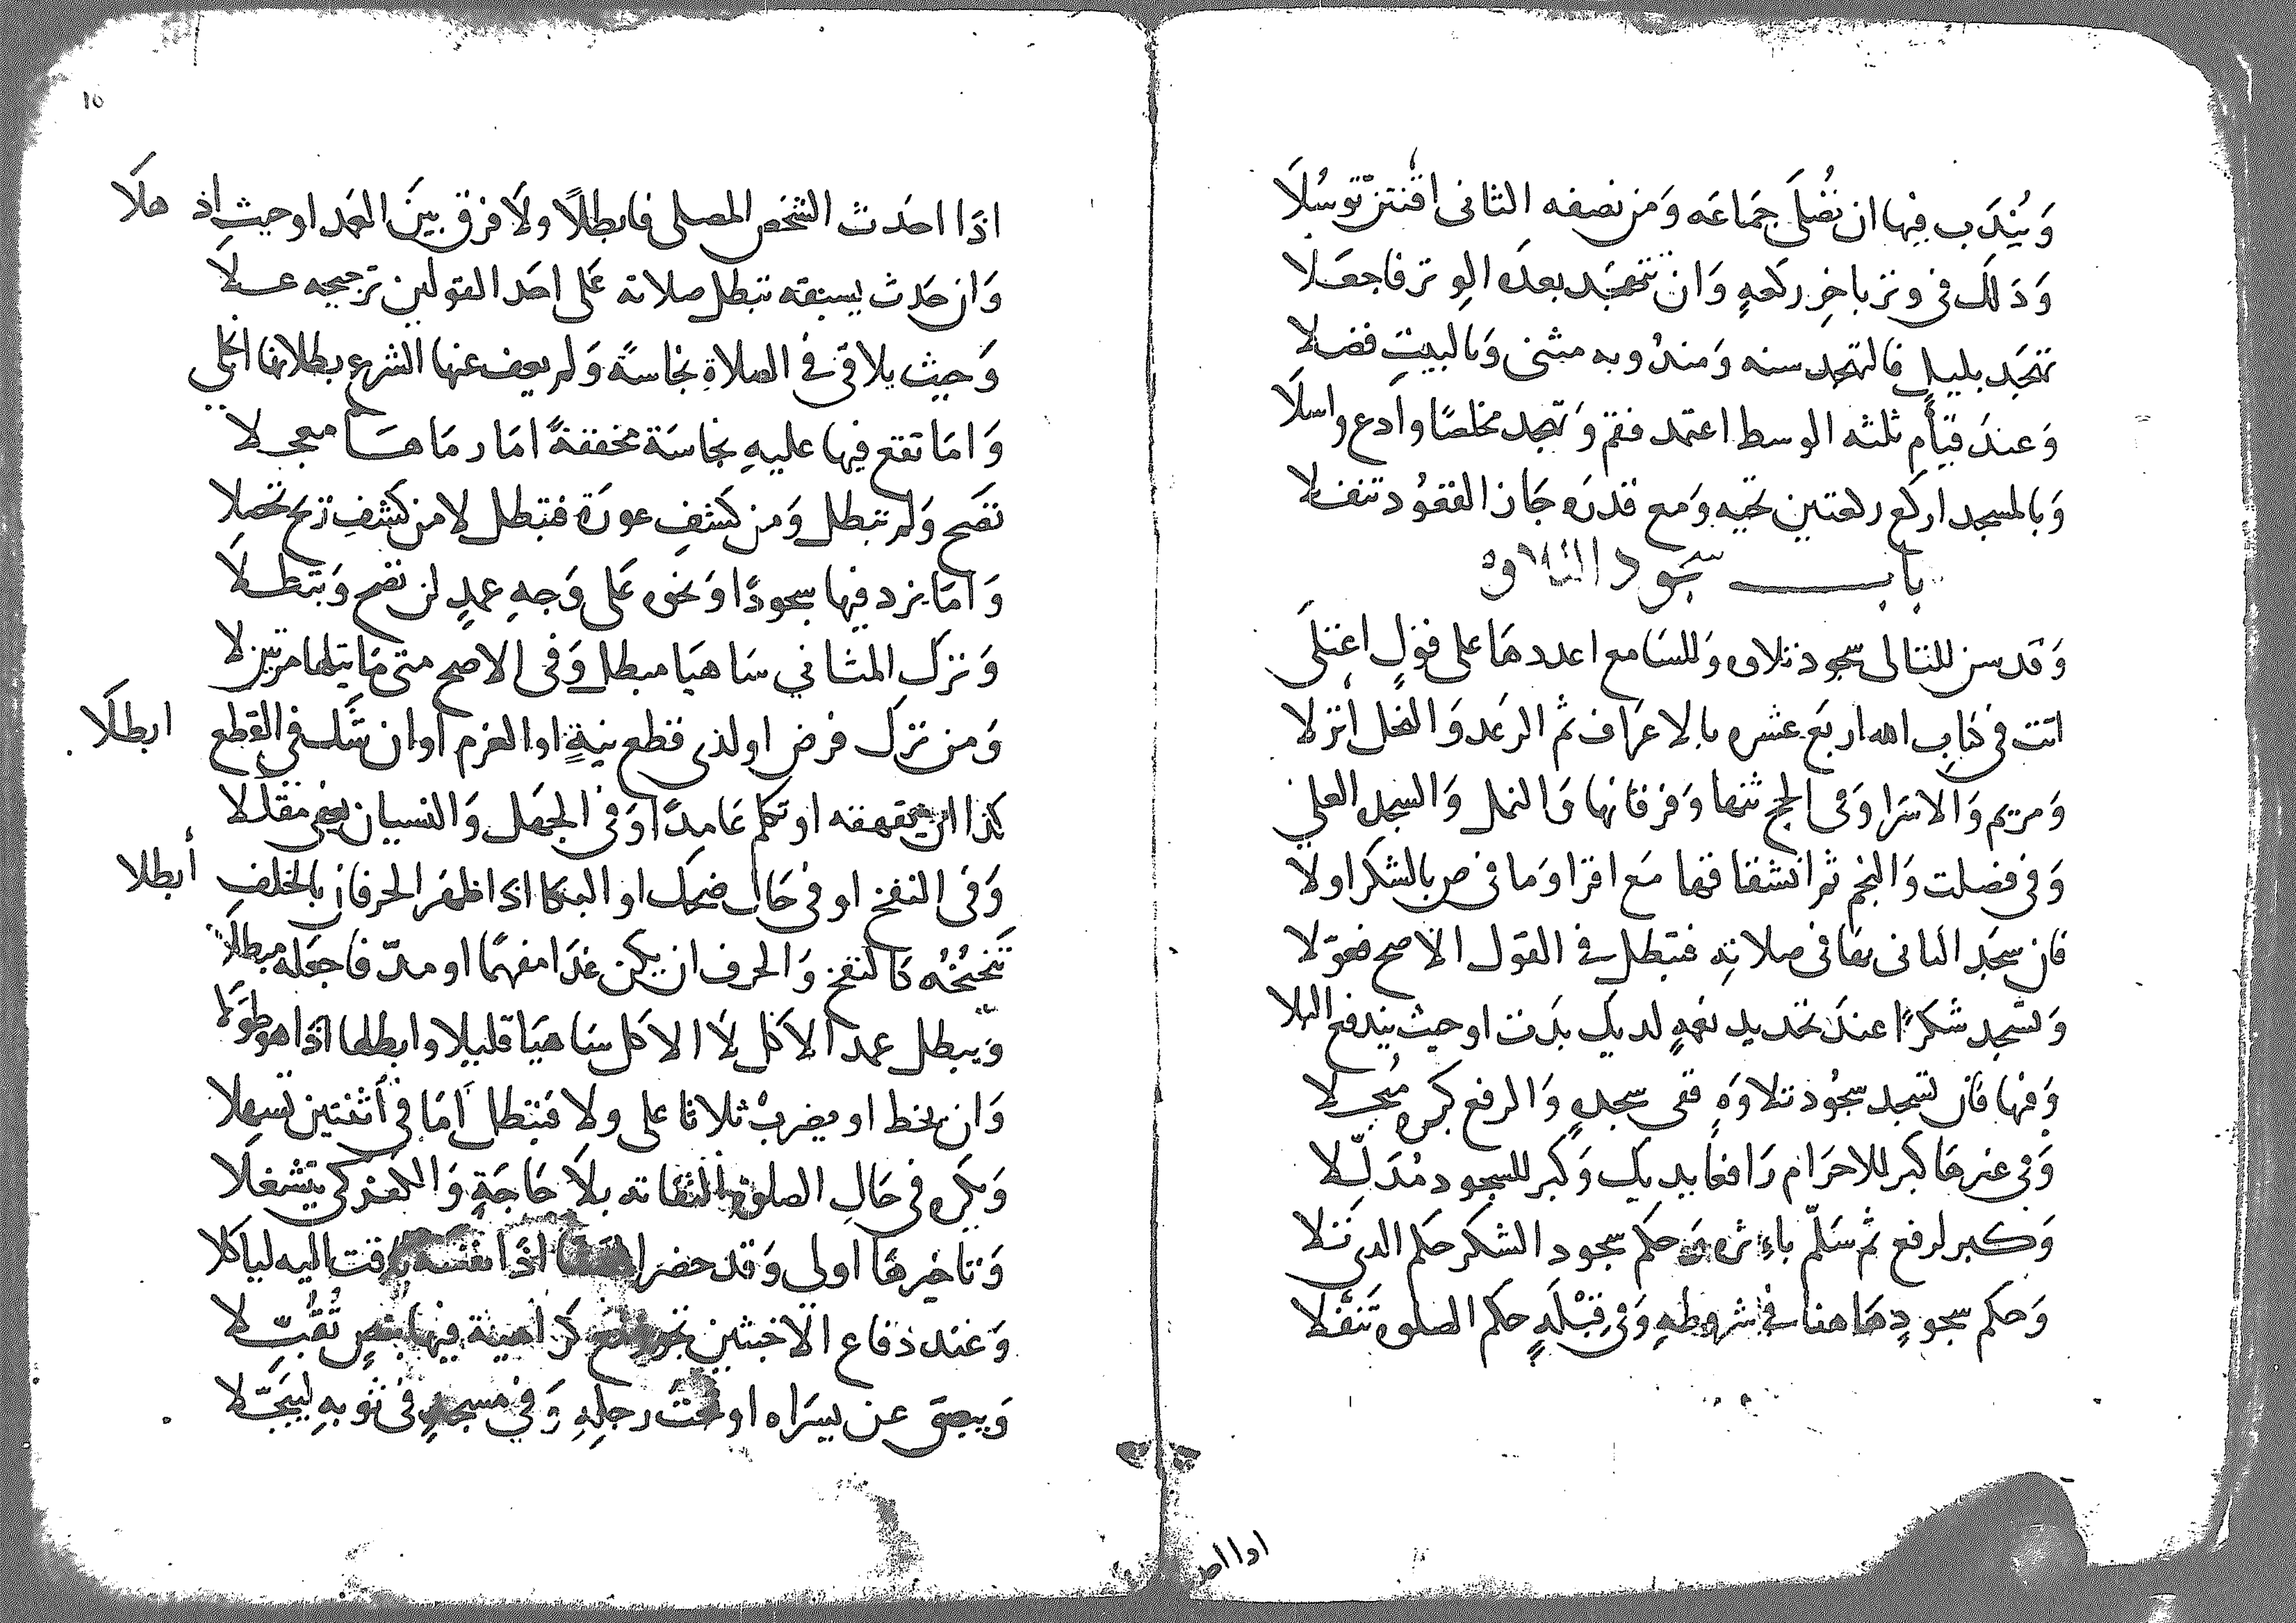 وَيُنْدَب فيها ان تُصَلى جمَاعَه وَمن نصفه الثانى اقنتنّ توسُلَا
وَذلك فى وتر باخِر ركعةٍ وَان تتهجد بعدَه الوتر فاجعَلا
تهَجَد بليل فالتهجد سنه وَمندوبه مثنى وَبالبيت فضلا
وَعندَ قيام ثلثه الوسط اعتمد فقم وَتهجد مخلصًا وادع واسلَا
وَبالمسجد اركع ركعتين تحيه وَمع قدرَه جَاز القعُود تنفلا
باب سجود التلاوه
وَقد سن للتالى سجود تلاوه وَللسَامع اعددهَا على قولٍ اعتلَى
اتت فى كتاب الله اربع عشره بالاعرَاف ثم الرعَد وَالنحل أنزلا
وَمريم وَالاسرَا وَفى الحج ثنها وَفرقانها وَالنمل وَالسجد العلي
وَفى فصلت وَالنجم ثم انشقاقها مَع اقرا وَما فى ص بالشكر اولا
فان سجَد الثانى بها فى صلاته فتبطل فى القول الاصح فعوّلا
وَتسجد شكرًا عندَ تجديد نعمةٍ لديك بدَت او حيث يندفع البلا
وَفيها فان تسجد سجُود تلاوَةٍ ففى سجدةٍ وَالرفع كبره مُبجلا
وَفى غيرهَا كبر للاحرَام رَافعًا يديك وَكبر للسجود مُدَلّلا
وَكبر لرفع ثم سَلّم باءثره وَحكم سجود الشكر حكم الذى تَلا
وَحكم سجودٍ هَاهنا فى شروطهِ وَفى قِبْلَةٍ حكم الصلوه تَنفَلا
اوا احد
١٥
اذَا احدَث الشخص المصلى فابطلًا ولَا فرق بينَ العمد او حيث اذ هلَا
وَان حَدث يسبقه تبطل صلاته عَلى احَد القولين ترجيحه عـلَا
وَحيث يلاقى فى الصلاةِ نجاسةً وَلم يعف عنها الشرع بطلانها انجلى
وَامَا تقع فيها عليهِ نجاسَة مخففةً امَا رمَاهـَا معجلا
تصَح وَلم تبطل وَمن كشفِ عورَة فتبطل لا من كشفِ ريح تحصلا
وَامَا يزد فيها سجودًا وَنحوه عَلى وَجهِ عمدٍ لن تصح وَتبطلَا
وَترك المثاني سَاهيَا مبطل وَفى الاصح متى مَا يتلها مرتين لا
وَمن ترك فرض او لذى قطع نيةٍ او العزم او ان شك فى القطع ابطلَا
كذا ان يقهقه او تكلم عَامدًا وَفى الجهَل وَالنسيان يعفى مقلّلا
وَفى النفخ او فى حَال ضحك او البكا اذا ظهَر الحرفان بالخلفِ أبطلا
تَنَحنُحُه كالنفخ وَالحرف ان يكن غدَا مفهمًا او مدّ فاجعَله مبطلَا
وَيبطل عمد الاكل لَا الاكل سَاهيَا قليلا وابطلها اذَا هو طَوَّلا
وَان يخط او يضربْ ثلاثا على ولا فتبطل اَمَا فى أثنتين تسهلا
وَيكره فى حَالِ الصلوة التفاته بلَا حَاجَةٍ وَالكعبر كى يتشغلَا
وَتاخيرهَا اولى وَقد حضر اذَا نفسه تاقت اليه لياكلا
وَعند دفاع الاخبثين كراهية فيها بنصٍ تقُبّلا
وَيبصق عن يسرَاه او تحت رجلِهِ وَفى مسجدٍ فى ثوبهِ ليبجّلا